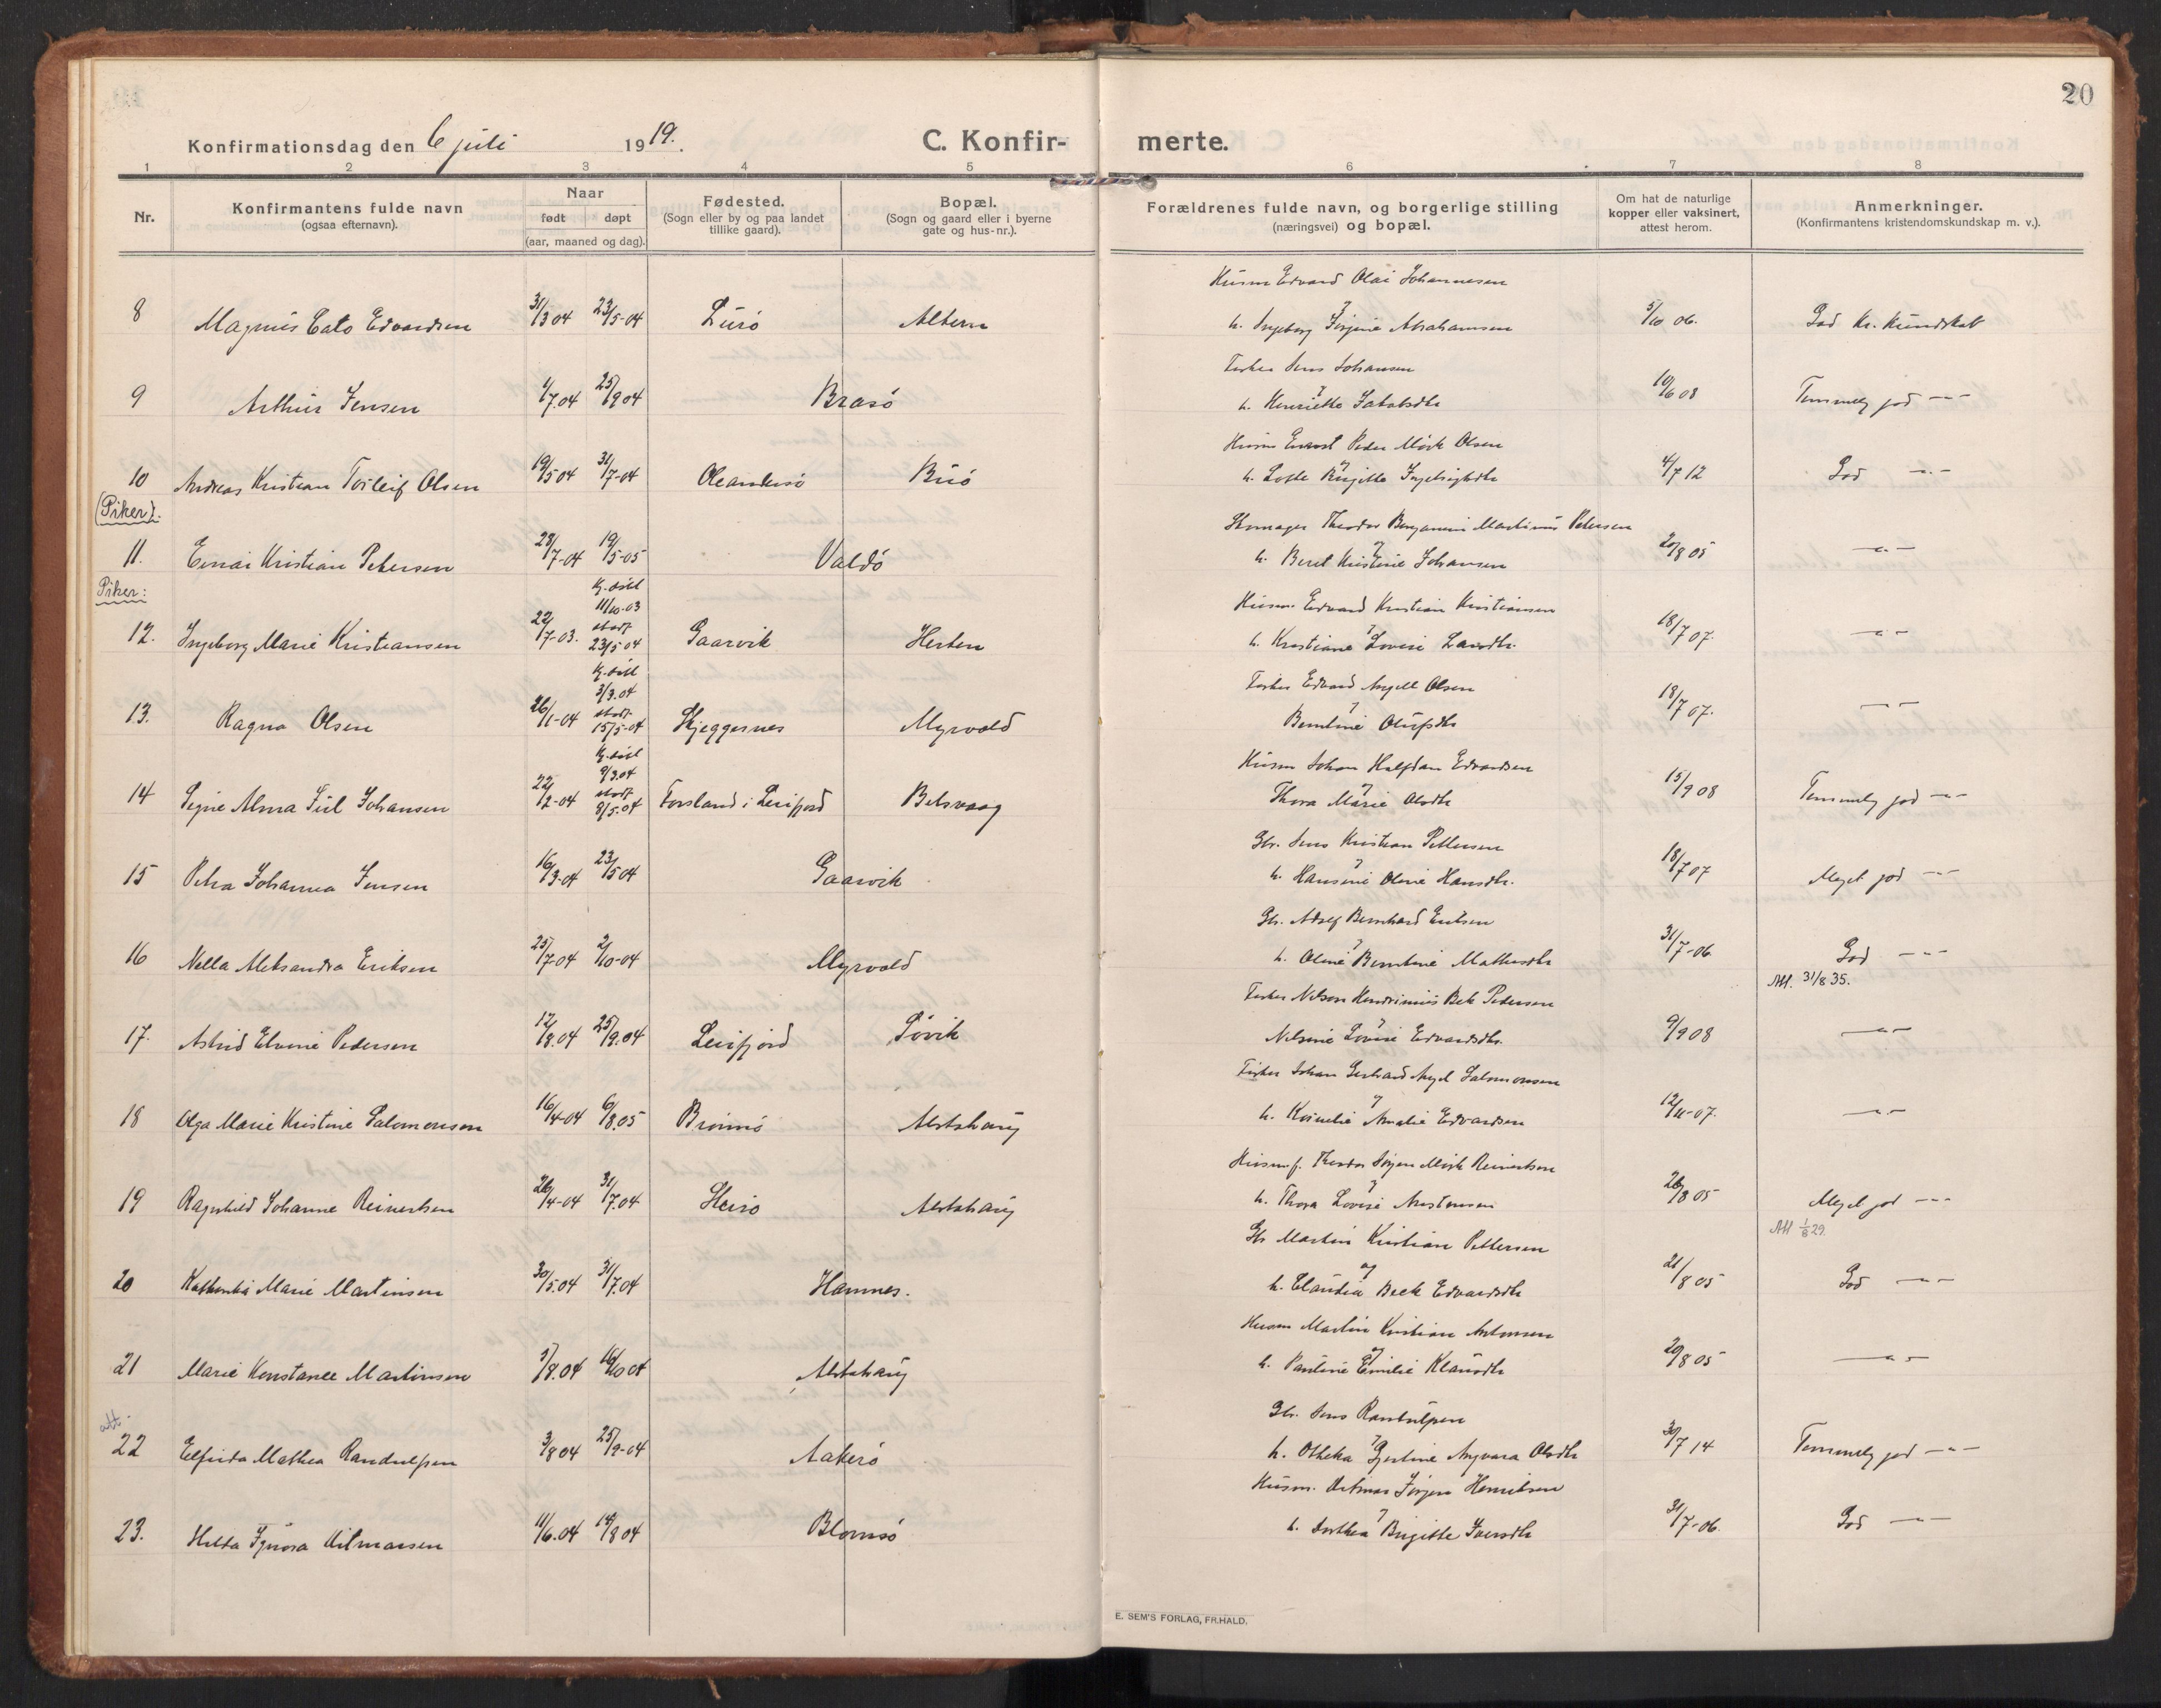 20
Konfirmationsdag den 6 juli 1919.
C. Konfir- merte.
1 2 3 4 5 6 7 8
Nr.
Konfirmantens fulde navn
(ogsaa efternavn).
Naar
født døpt
(aar, maaned og dag).
Fødested.
(Sogn eller by og paa landet
tillike gaard).
Bopæl.
(Sogn og gaard eller i byerne
gate og hus-nr.).
Forældrenes fulde navn, og borgerlige stilling
(næringsvei) og bopæl.
Om hat de naturlige
kopper eller vaksinert,
attest herom.
Anmerkninger.
(Konfirmantens kristendomskundskap m. v.).
Husm Edvard Olai Johannesen
8 Magnus Cato Edvardsen 31/3 04 23/5-04 Lurö Altern h. Ingeborg Jörgine Abrahamsen 5/10 06. God Kr. Kundskab
Fisker Jens Johansen
9 Arthur Jensen 1/7.04 25/9 04 Brasö h. Henriette Jakobsdtr 10/6 08 Temmely god -"-
Husm Enevst Peder Mörk Olsen
10 Andreas Kristian Torleif Olsen 19/5 04 31/7-04 Oleandersö Buö h. Lotte Birgitte Ingebrigtsdtr 4/7 12 God -"-
(Piker).
Skomager Theodor Benjamin Martinus Petersen
11. Einar Kristian Petersen 23/7-04 19/5-05 Valdö h. Beret Kristine Johansen 20/8 05 -"-
Piker:
Kj. döbt
11/10-03
Husm. Edvard Kristian Kristiansen
12. Ingeborg Marie Kristiansen 22/7-03. stadf 23/5 04 Gaarvik Herten h. Kristiane Lovise Larsdtr. 18/7 07. -"-
Kj. döbt
3/3.04
Fisker Edvard Angell Olsen
13. Ragna Olsen 26/1-04 stadf 15/5-04 Skjeggesnes Myrvold Berntine Olufsdtr 18/7 07. -"-
Kj. döbt
9/3.04
Husm Johan Halfdan Edvardsen
14 Signe Alma Jul Johansen 22/2-04 stadf 8/5.04 Forsland i Leirfjord Belsvaag Thora Marie Olsdtr 15/9 08 Temmely god -"-
Gbr. Jens Kristian Pettersen
15 Petra Johanna Jensen 16/3-04 23/5 04 Gaarvik h. Hansine Oline Hansdtr. 18/7 07 Meget god -"-
Gbr. Adolf Bernhard Eriksen
16 Nella Aleksandra Eriksen 25/7-04 2/10-04 Myrvold h. Oline Berntine Mathisdtr 31/7-06 God -"-
Att. 31/8 35.
Fisker Nelson Hendrinius Bek Pedersen
17. Astrid Elvine Pedersen 12/8.04 25/9.04 Leirfjord Sövik Nelsine Lovise Edvardsdtr. 9/9 08 -"-
Fisker Johan Gerhard Angel Salomonsen
18 Olga Marie Kristine Salomonsen 16/4-04 6/8.05 Brönnö Alstahaug h. Kornelie Amalie Edvardsen 12/11-07. -"-
Husm.f. Theodor Jörgen Mörk Reinertsen
19 Ragnhild Johanne Reinertsen 26/4-04 31/7.04 Herö Alstahaug h. Thora Lovise Aristensen 28/8 05 Meget god -"-
Att 1/8 29.
Gb Martin Kristian Pettersen
20 Kathinka Marie Martinsen 30/5.04 31/7.04 Hamnes. h. Claudia Beck Edvardsdtr 21/8 05 God -"-
Husm Martin Kristian Antonsen
21 Marie Konstance Martinsen 5/8.04 16/10 04 Alstahaug h. Pauline Emilie Klausdtr 20/8 05 -"-
att.
Gbr. Jens Randulfsen
22 Elfrida Mathea Randulfsen 3/8 04 25/9-04 Aakerö h. Otheka Gjertine Angvara Olsdtr 30/7 14 Temmely god -"-
Husm. Vilmar Jörgen Henriksen
23. Hilda Ignora Vilmarsen 11/6.04 14/8 04 Blomsö h. Dorthea Birgitte Iversdtr 31/7-06. God -"-
E. SEM'S FORLAG, FR.HALD.